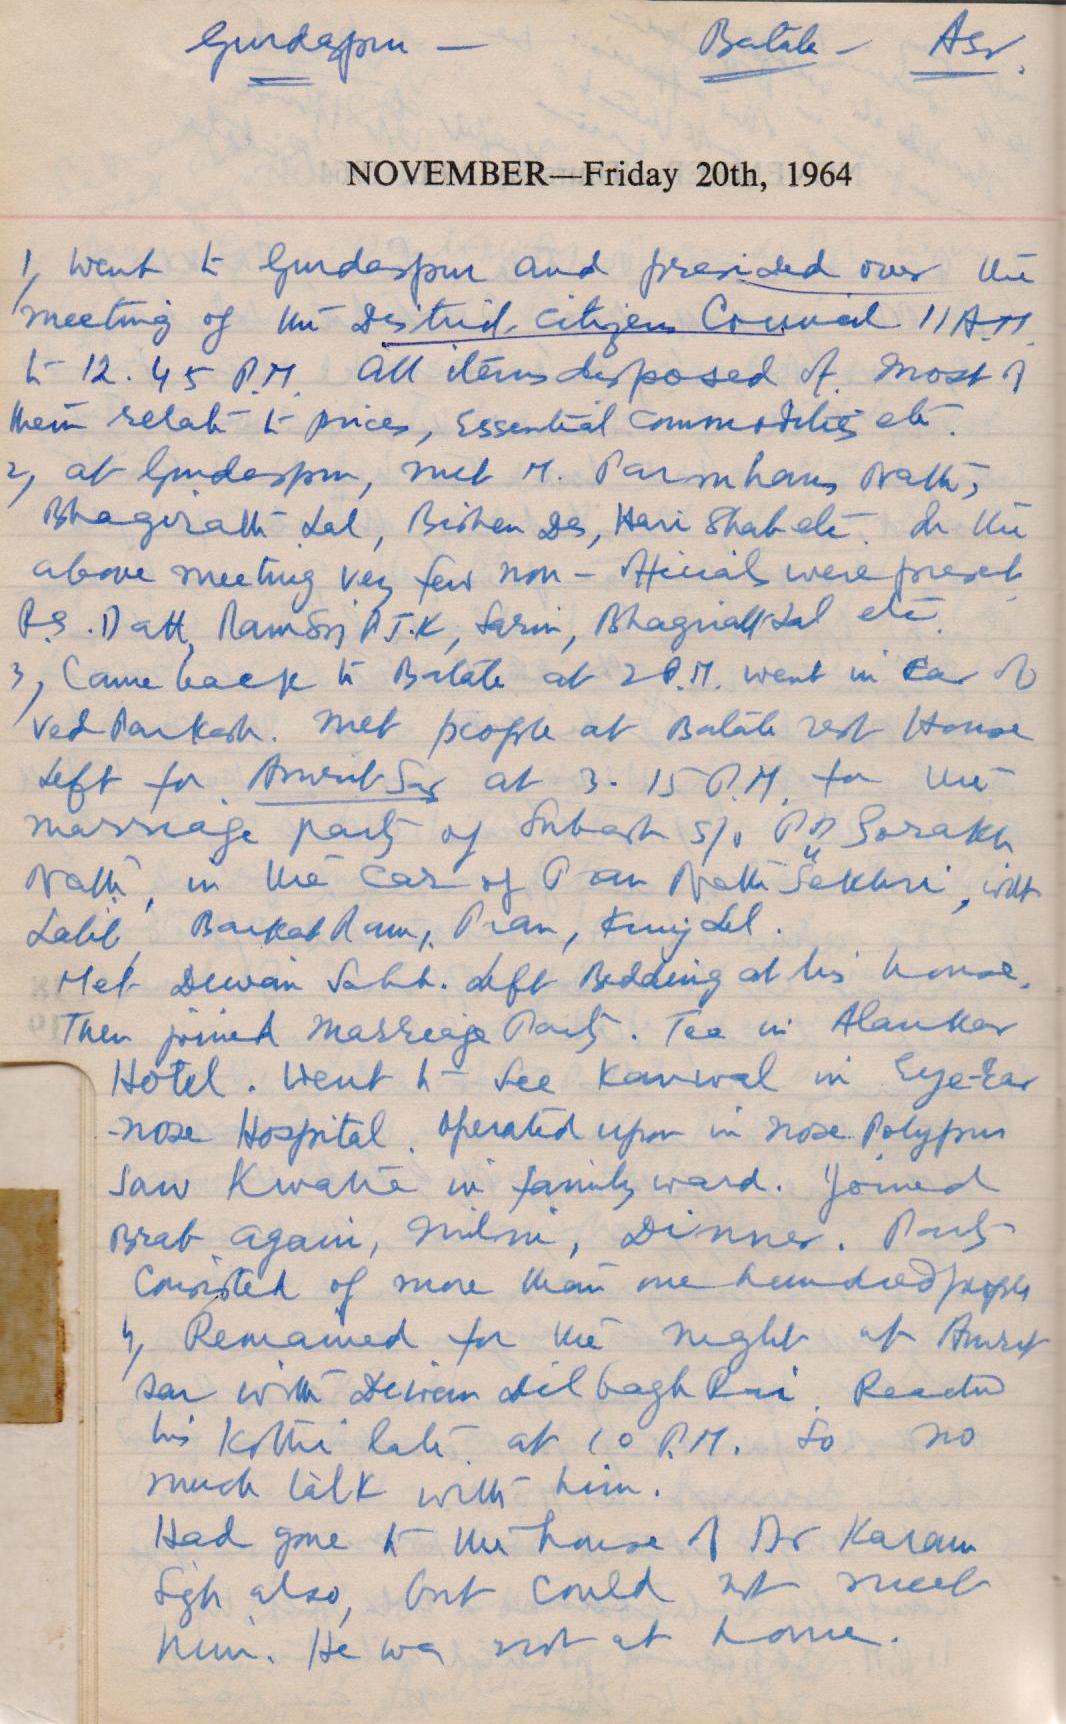 Gurdaspur — Batala - Asr.
NOVEMBER—Friday 20th, 1964
1, Went to Gurdaspur and presided over the
meeting of the District Citizens Council 11 A.M.
to 12.45 P.M. All items disposed of. Most of
them relate to prices, Essential Commodities etc.
2, at Gurdaspur, met M. Parmhans Nath,
Bhagirath Lal, Bishen Das, Hari Shah etc. In the
above meeting very few non-officials were present
P.S. Datt, Ram Singh P.T.K, Sarin, Bhagirath Lal etc.
3, Came back to Batala at 2 P.M. went in Car of
Ved Parkash. Met people at Batala rest House
Left for Amrit Sar at 3.15 P.M. for the
marriage party of Subash s/o Pt Gorakh
Nath, in the Car of Pran Nath Sekhri, with
Lalit, Barkat Ram, Pran, Kunj Lal.
Met Dewan Sahib. Left Bedding at his house.
Then joined marriage Party. Tea in Alankar
Hotel. Went to see Kanwal in Eye-Ear
-nose Hospital. Operated upon in nose Polypus
Saw in family ward. Joined
Brat again, Milni, Dinner. Party
Consisted of more than one hundred people
4, Remained for the night at Amrit
sar with Dewan Dilbagh Rai. Reached
his Kothi late at 10 P.M. So no
much talk with him.
Had gone to the house of Dr Karam
Sgh also, but could not meet
him. He was not at home.